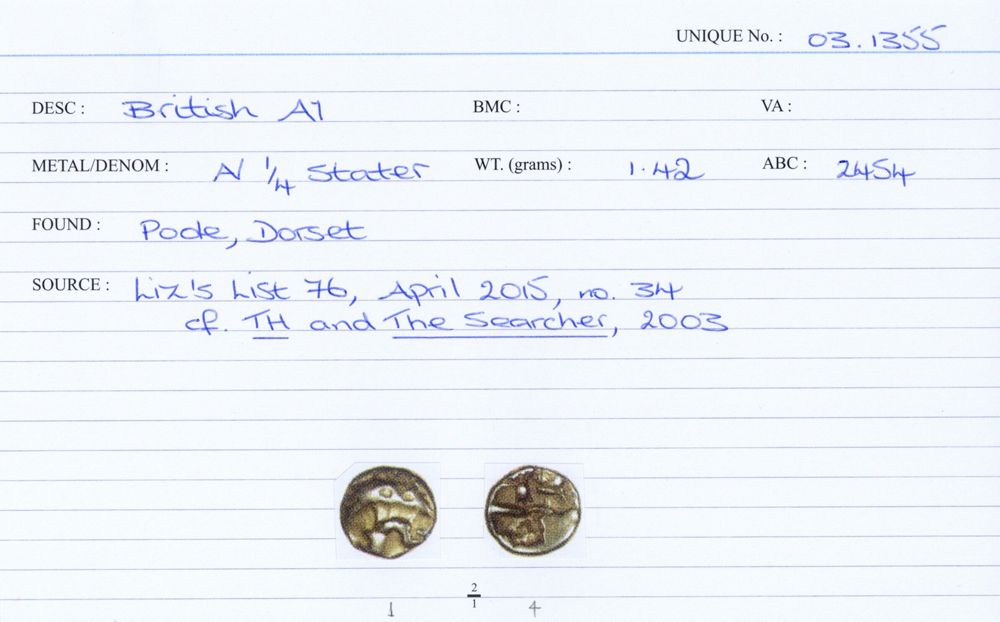 UNIQUE No. : 03.1355
DESC : British A1 BMC : VA :
METAL/DENOM : N 1/4 Stater WT. (grams) : 1.42 ABC : 2454
FOUND : Poole, Dorset
SOURCE : Liz's List 76, April 2015, no. 34
cf. TH and The Searcher, 2003
2/1
1 4